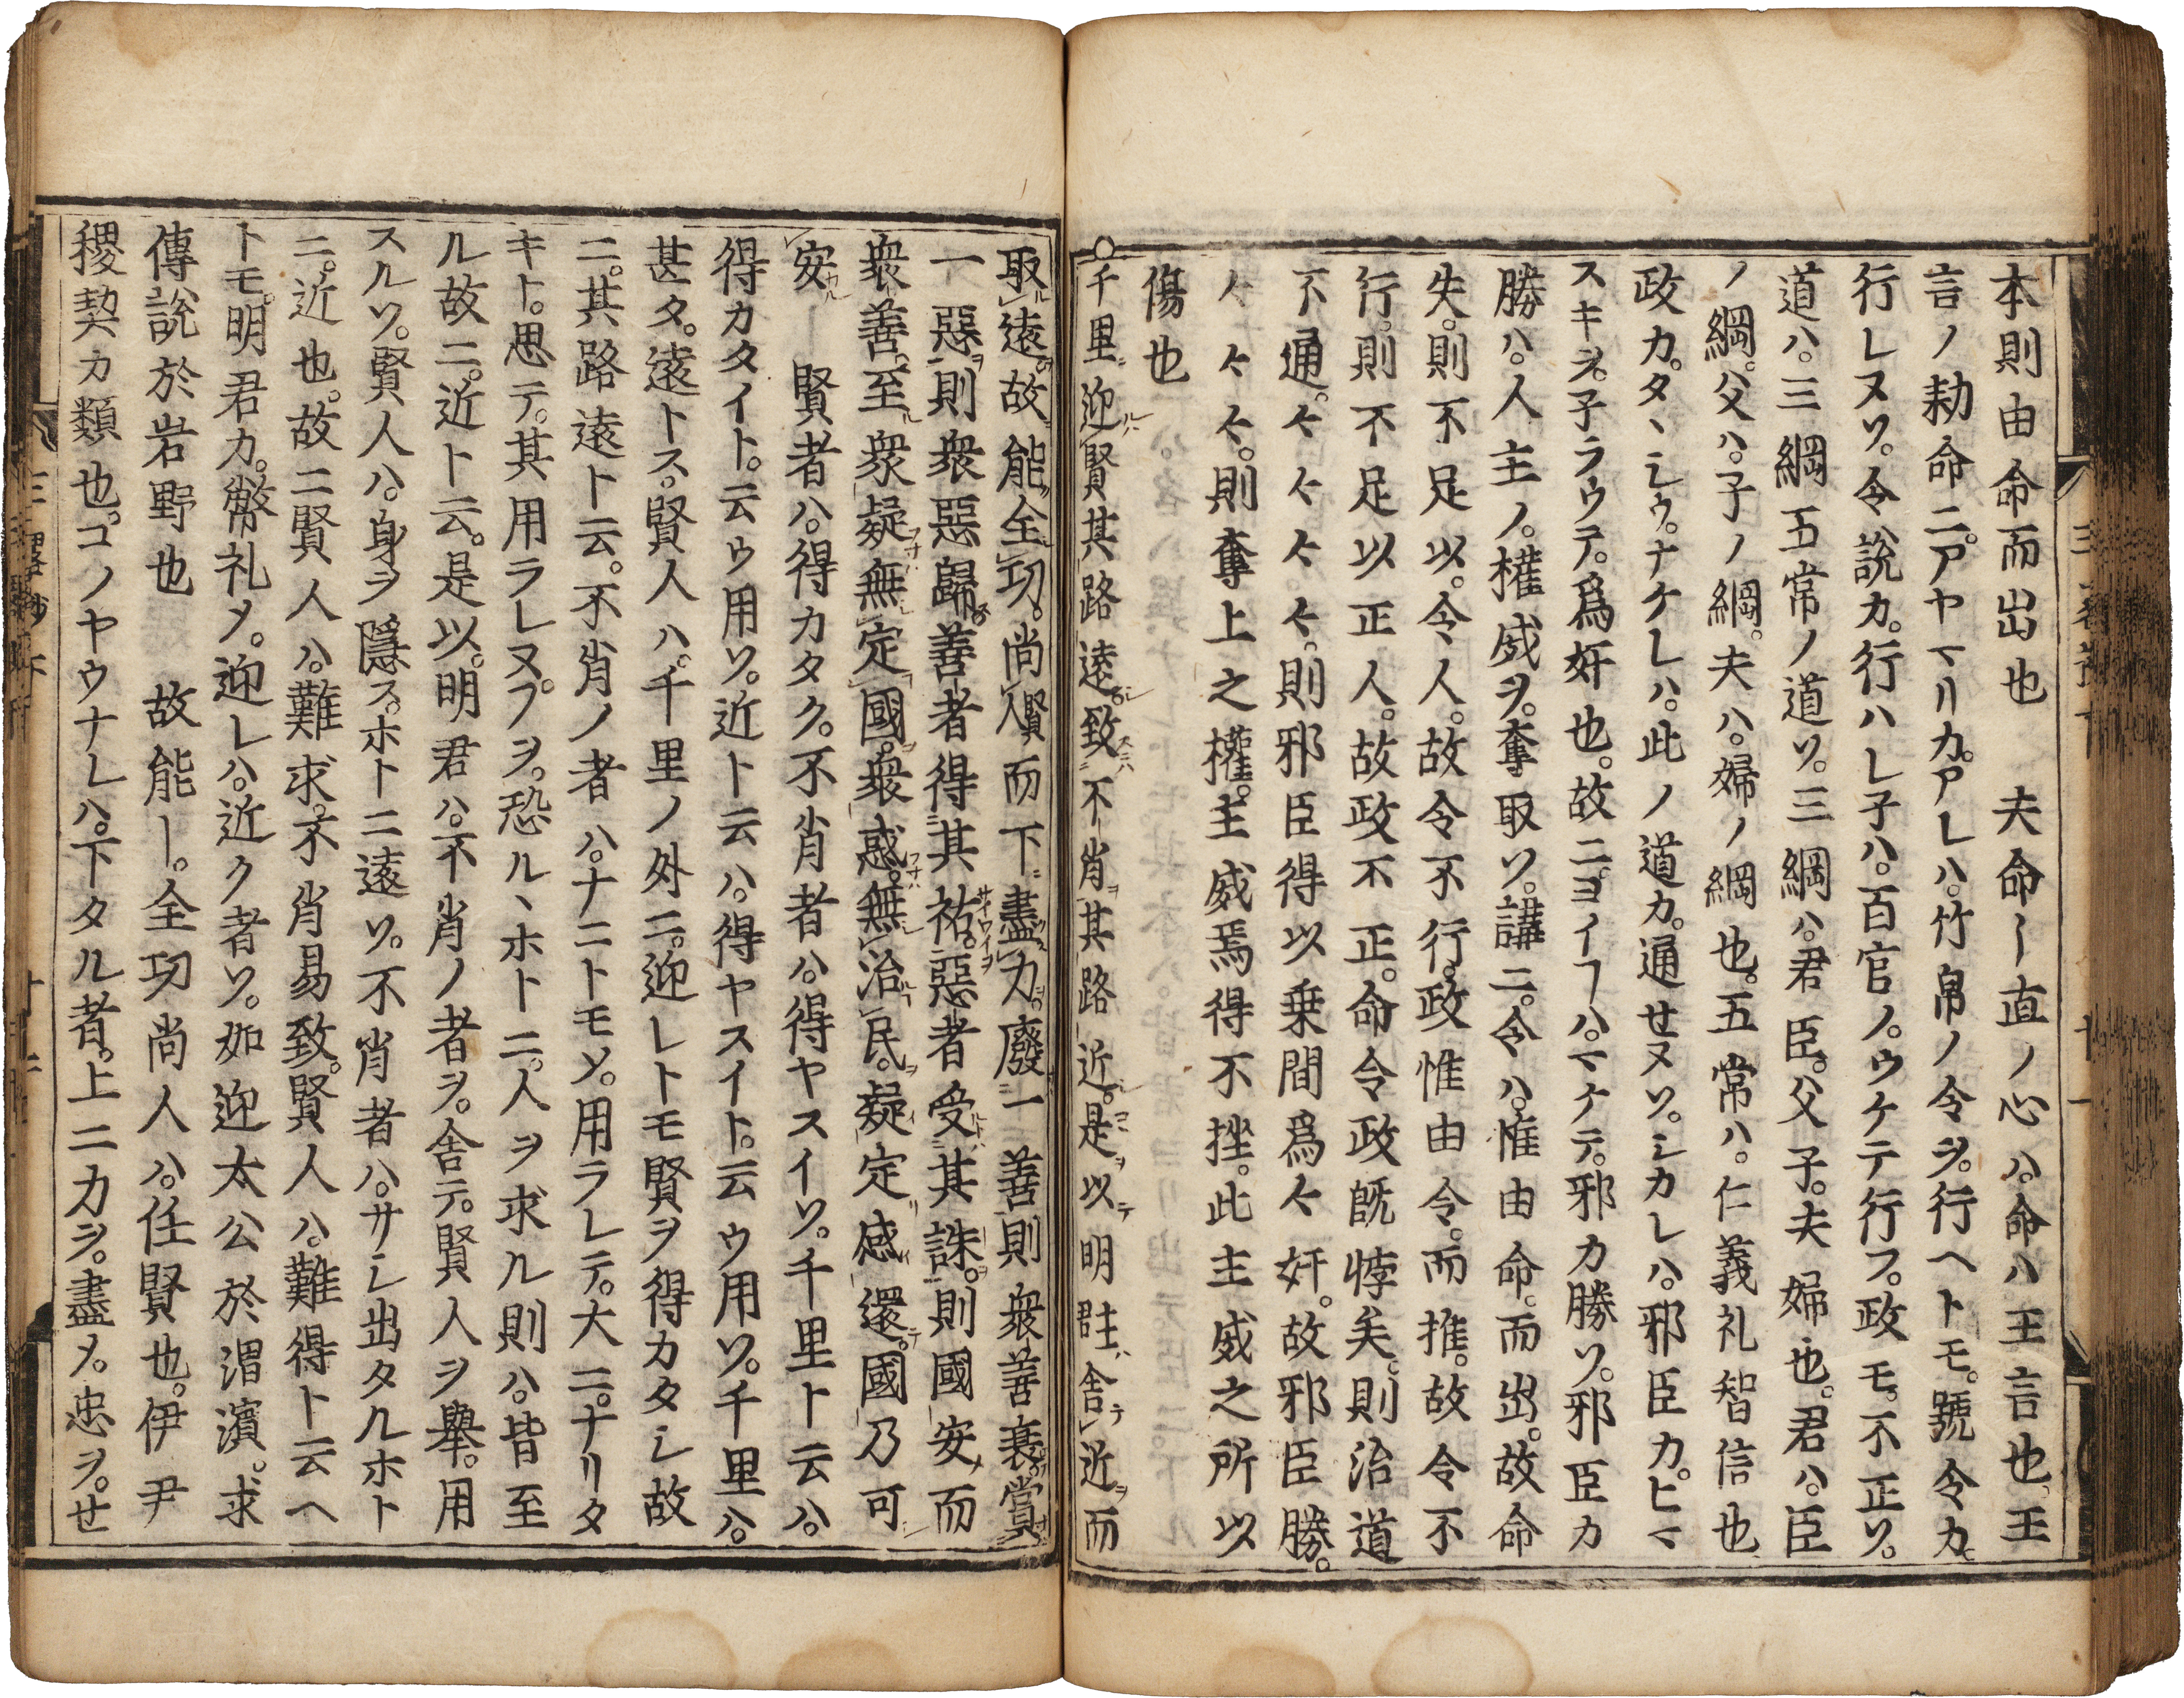 本則由命而出也　夫命ー直ノ心ハ。命ハ王言也、王
言ノ勅命ニ。アヤマリカ。アレハ。竹帛ノ令ヲ。行ヘトモ。號令カ。
行レヌソ。令説カ。行ハレ子ハ。百官ノ。ウケテ行フ。政モ。不正ソ。
道ハ。三綱五常ノ道ソ。三綱ハ。君臣。父子。夫婦也。君ハ。臣
ノ綱。父ハ。子ノ綱。夫ハ。婦ノ綱也。五常ハ。仁義礼智信也
政カ。タヽシウ。ナケレハ。此ノ道カ。通せヌソ。シカレハ。邪臣カ。ヒマ
スキヲ。子ラウテ。爲奸也。故ニ。ヨイフハ。マケテ。邪カ勝ソ。邪臣カ
勝ハ。人主ノ。權威ヲ。奪取ソ。講ニ。令ハ。惟由命。而出。故命
失。則不足以。令人。故令不行。政惟由令。而推。故令不
行。則不足以正人。故政不正。命令政既悖矣。則治道
不通。々々々々。則邪臣得以乗間爲々奸。故邪臣勝。
々々々。則奪上之權。主威焉得不挫。此主威之所以
傷也
○千里迎賢其路遠。致不肖其路近。是以明君主ハ舍テ近ヲ而
取遠。故能全功。尚人賢而下盡力。廢一善則衆善衰。賞
一惡則衆惡歸。善者得其祐。惡者受其誅。則國安而
衆善至。衆疑無定國。衆惑無治民。疑定惑還。國乃可
安ー　賢者ハ。得カタク。不肖者ハ。得ヤスイソ。千里ト云ハ。
得カタイト。云ウ用ソ。近ト云ハ。得ヤスイト。云ウ用ソ。千里ハ。
甚タ。遠トス。賢人ハ。千里ノ外ニ。迎レトモ賢ヲ得カタシ故
ニ。其路遠ト云。不肖ノ者ハ。ナニトモメ。用ラレテ。大ニ。ナリタ
キト。思テ。其用ラレヌフヲ。恐ルヽホトニ。人ヲ求ル則ハ。皆至
ル故ニ。近ト云。是以。明君ハ。不肖ノ者ヲ。舍テ。賢人ヲ擧。用
スルソ。賢人ハ。身ヲ隱ス。ホトニ遠ソ。不肖者ハ。サシ出タルホト
ニ。近也。故ニ賢人ハ。難求。不肖易致。賢人ハ。難得ト云ヘ
トモ。明君カ。幣礼メ。迎レハ。近ク者ソ。如迎太公於渭濱。求
傅説於岩野也　故能ー。全功尚人ハ。任賢也。伊尹
稷契カ類也。コノヤウナレハ。下タル者。上ニカヲ。盡メ。忠ヲ。せ